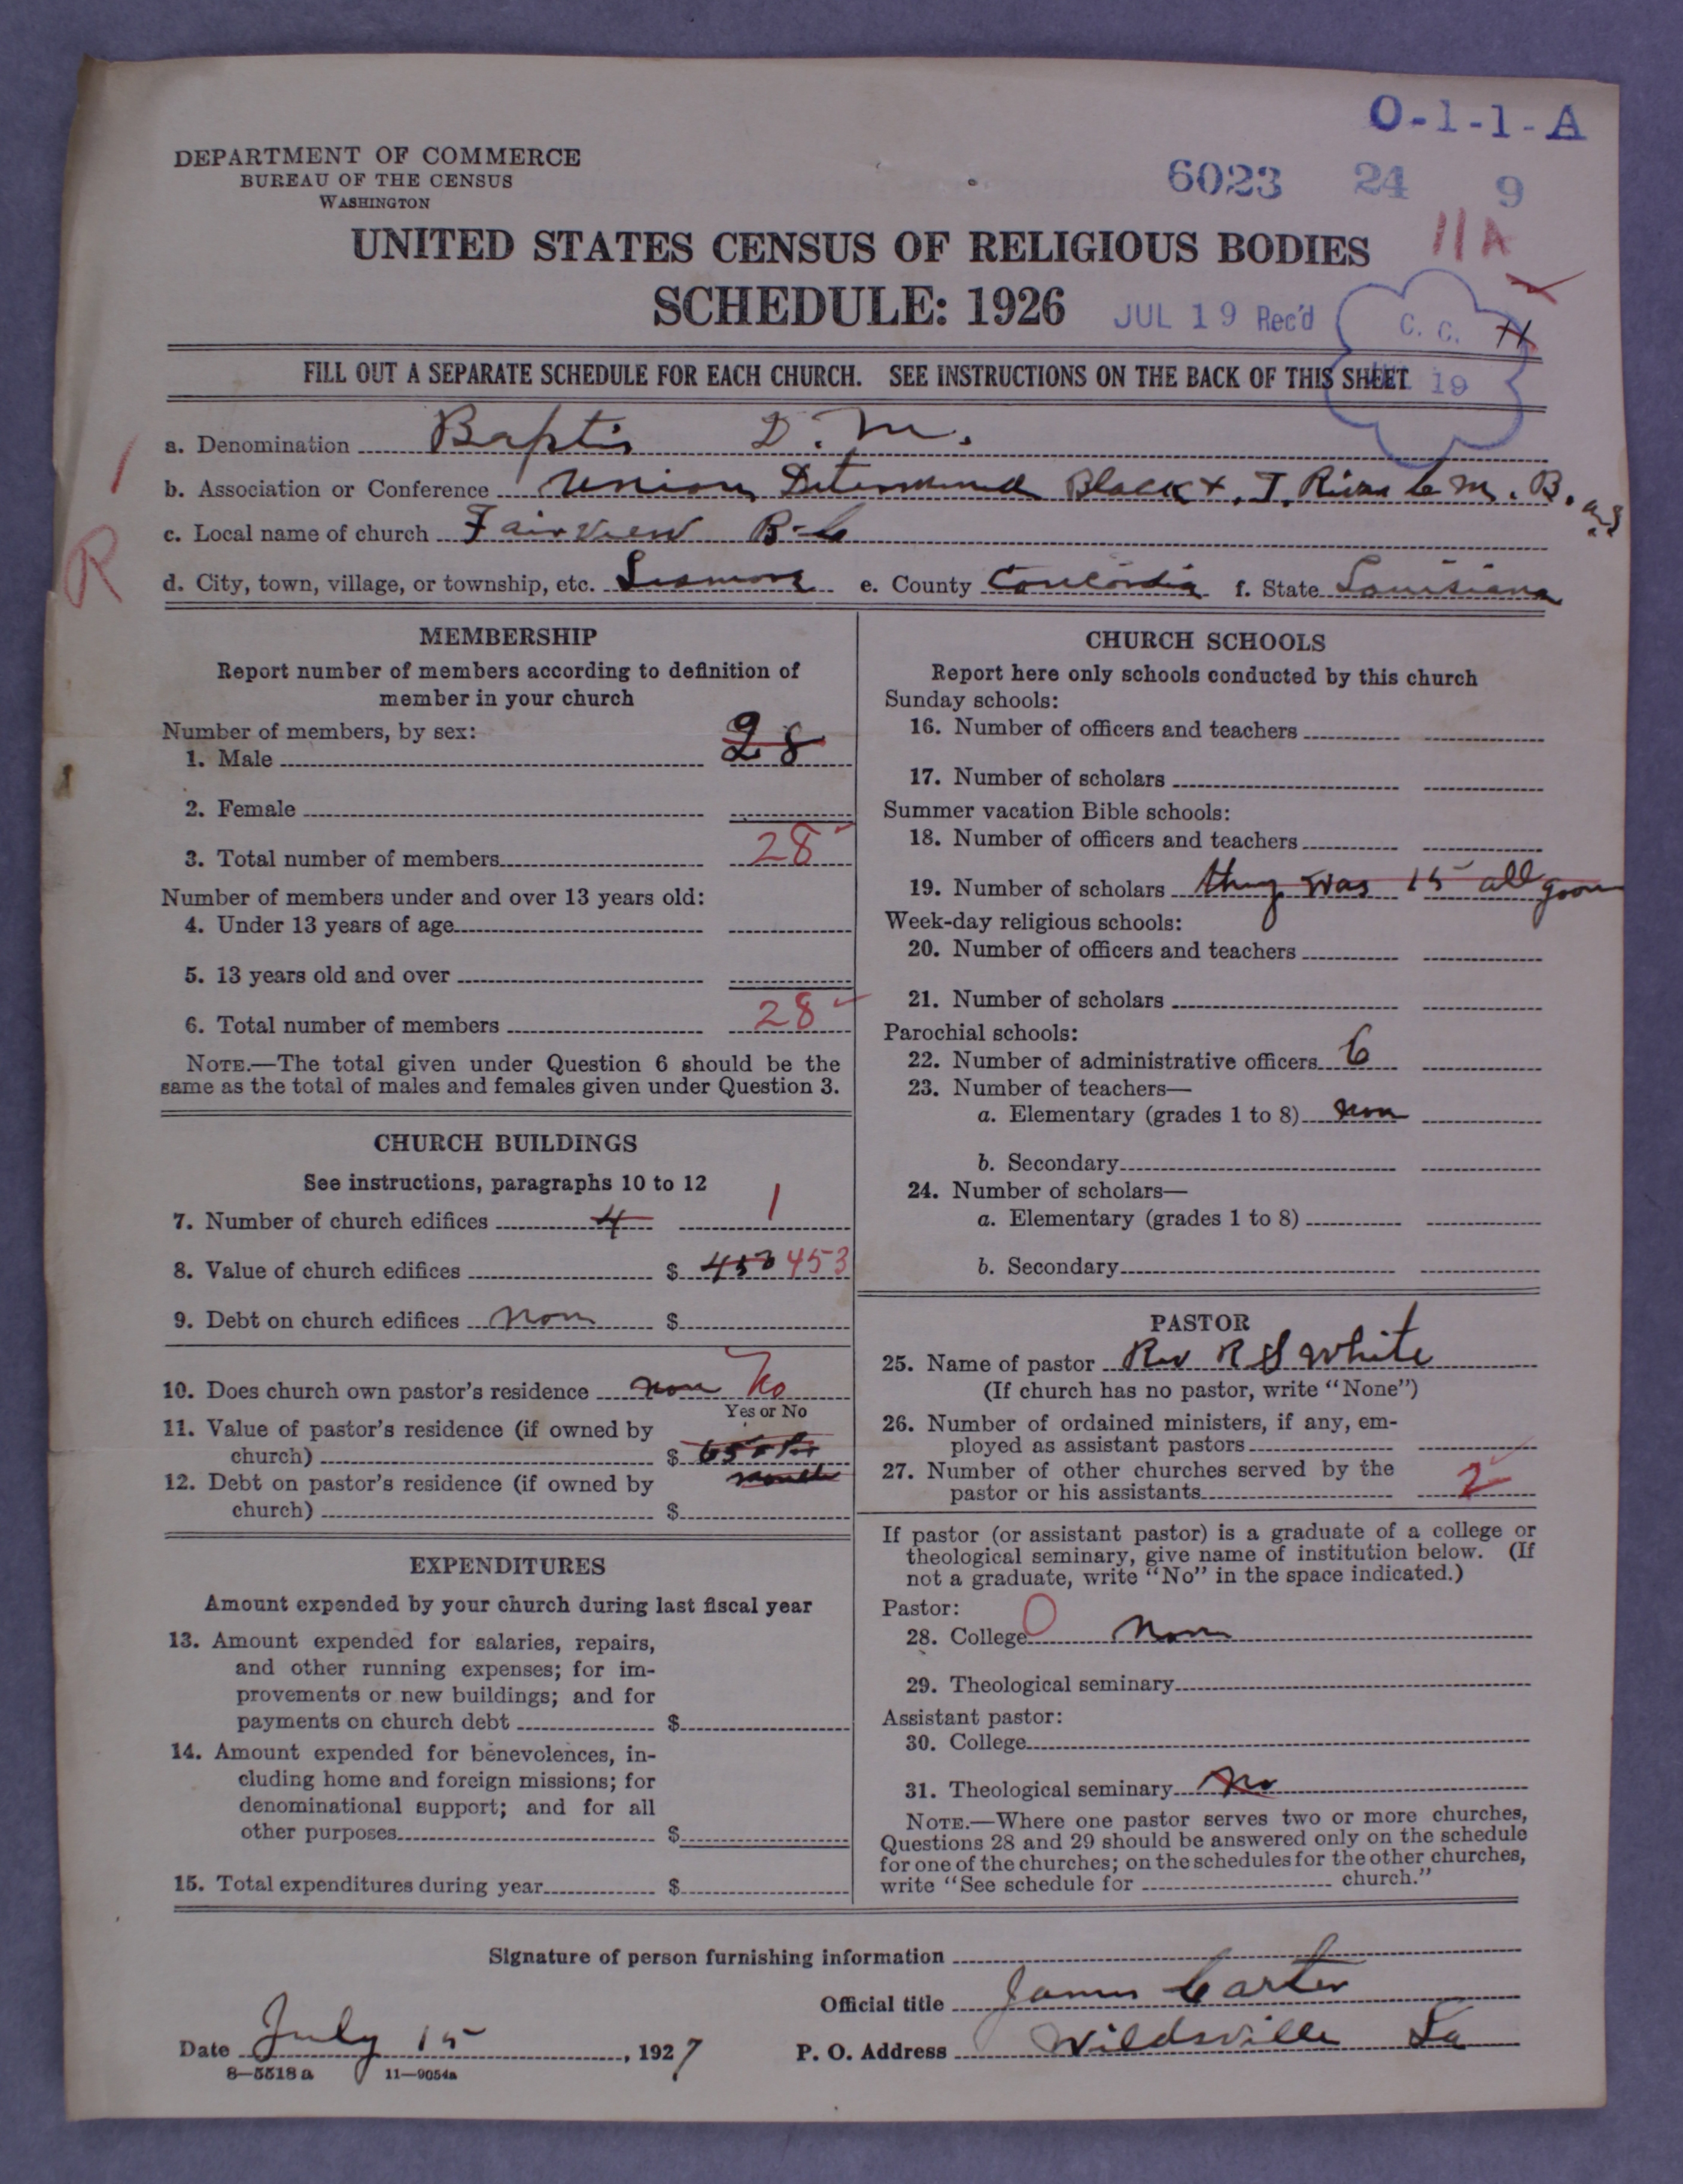 O-1-1-A
DEPARTMENT OF COMMERCE
BUREAU OF THE CENSUS
WASHINGTON
6023 24 9
11A
UNITED STATES CENSUS OF RELIGIOUS BODIES
SCHEDULE: 1926
JUL 19 Rec'd
C. C. H
19
FILL OUT A SEPARATE SCHEDULE FOR EACH CHURCH. SEE INSTRUCTIONS ON THE BACK OF THIS SHEET
a. Denomination Baptis D. M.
b. Association or Conference Union Determined Black & T. River C M. B. as
c. Local name of church Fairview B-C
R
d. City, town, village, or township, etc. e. County Concordia f. State Louisiana
MEMBERSHIP
Report number of members according to definition of
member in your church
Number of members, by sex:
1. Male 28
2. Female
3. Total number of members 28
Number of members under and over 13 years old:
4. Under 13 years of age
5. 13 years old and over
6. Total number of members 28
NOTE.—The total given under Question 6 should be the
same as the total of males and females given under Question 3.
CHURCH BUILDINGS
See instructions, paragraphs 10 to 12
7. Number of church edifices 4 1
8. Value of church edifices $ 453 453
9. Debt on church edifices non $
10. Does church own pastor's residence non No
Yes or No
11. Value of pastor's residence (if owned by
church) $
12. Debt on pastor's residence (if owned by month
church) $
EXPENDITURES
Amount expended by your church during last fiscal year
13. Amount expended for salaries, repairs,
and other running expenses; for im-
provements or new buildings; and for
payments on church debt $
14. Amount expended for benevolences, in-
cluding home and foreign missions; for
denominational support; and for all
other purposes $
15. Total expenditures during year $
CHURCH SCHOOLS
Report here only schools conducted by this church
Sunday schools:
16. Number of officers and teachers
17. Number of scholars
Summer vacation Bible schools:
18. Number of officers and teachers
19. Number of scholars they was 15 all goon
Week-day religious schools:
20. Number of officers and teachers
21. Number of scholars
Parochial schools:
22. Number of administrative officers 6
23. Number of teachers—
a. Elementary (grades 1 to 8) non
b. Secondary
24. Number of scholars—
a. Elementary (grades 1 to 8)
b. Secondary
PASTOR
25. Name of pastor Rev R S White
(If church has no pastor, write "None")
26. Number of ordained ministers, if any, em-
ployed as assistant pastors
27. Number of other churches served by the
pastor or his assistants 2
If pastor (or assistant pastor) is a graduate of a college or
theological seminary, give name of institution below. (If
not a graduate, write "No" in the space indicated.)
Pastor:
28. College O Non
29. Theological seminary
Assistant pastor:
30. College
31. Theological seminary No
NOTE.—Where one pastor serves two or more churches,
Questions 28 and 29 should be answered only on the schedule
for one of the churches; on the schedules for the other churches,
write "See schedule for church."
Signature of person furnishing information
Official title James Carter
Date July 15, 1927 P. O. Address Wildsville La
8—5518a 11—9054a